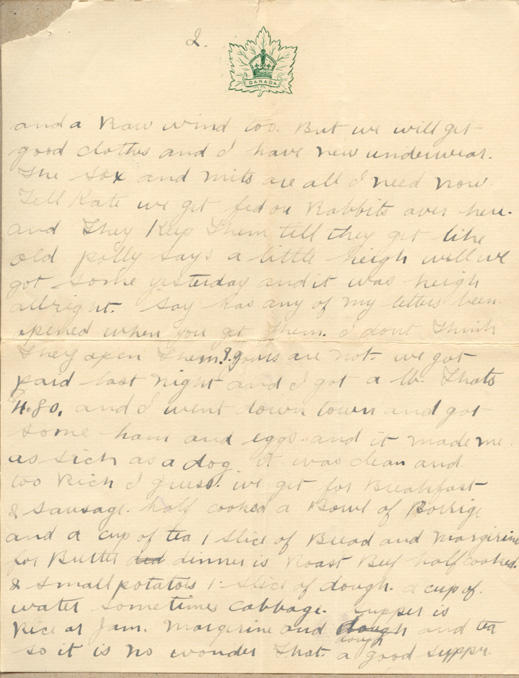 2.
CANADA
and a Raw wind too. But we will get
good clothes and I have new underwear.
The Sox and mits are all I need now.
Tell Kate we get fed on Rabbits over here.
and They Keep Them till they get like
old polly says a little heigh will we
got some yesterday and it was heigh
allright. Say has any of my letters been
opened when you get Them. I dont Think
They open Them. yours are not. we got
paid last night and I got a lb. Thats
4.80. and I went down town and got
some ham and eggs and it made me
as sick as a dog. it was clean and
too Rich I guess. we get for Breakfast
& Sausage. half cooked a Bowl of Porrige
and a cup of tea 1 slice of Bread and Margerine
for Butter dinner is Roast Beef half cooked.
& small potatoes 1 slice of dough. a cup of
water sometimes cabbage. supper is
Rice or Jam. Margerine and dough and tea
so it is no wonder That a good supper